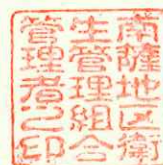 南薩地区衛
生管理組合
管理者之印